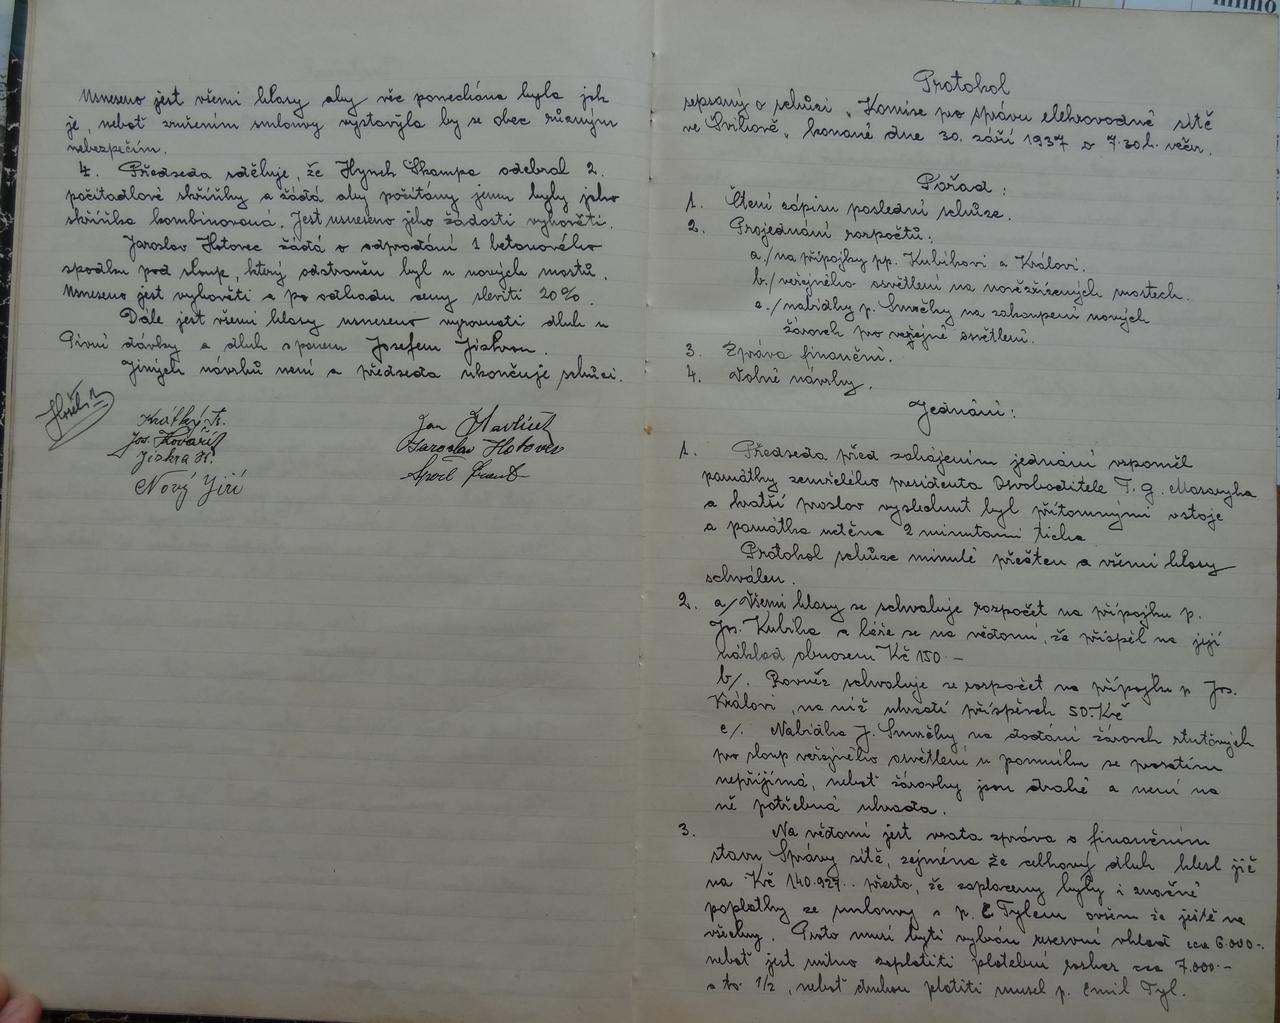 Usneseno jest všemi hlasy aby věc ponechána byla jak
je, neboť zrušením smlouvy vystavila by se obec různým
nebezpečím.
4. Předseda sděluje, že Hynek Škampa odebral 2
počitadlové skříňky a žádá aby počítány jemu byly jako
skříňka kombinovaná. Jest usneseno jeho žádosti vyhověti.
Jaroslav Hotovec žádá o odprodání 1 betonového
spodku pod sloup, který odstraněn byl u nových mostů.
Usneseno jest vyhověti a po odhadu ceny sleviti 20%.
Dále jest všemi hlasy usneseno vyrovnati dluh u
Pivní dávky a dluh s panem Josefem Jiskrou.
Jiných návrhů není a předseda ukončuje schůzi.
Krátký
Jos. Kovařík
Jiskra
Nový Jiří
Jan Havlíček
Jaroslav Hotovec
Protokol
sepsaný o schůzi „Komise pro správu elektrovodné sítě
ve Švihově„ konané dne 30. září 1937 o 7.30 h. večer.
Pořad:
1. Čtení zápisu poslední schůze.
2. Projednání rozpočtů:
a./ na přípojky pp. Kubíkovi a Královi.
b./ veřejného osvětlení na nově zřízených mostech.
c./ nabídky p. Smrčky na zakoupení nových
žárovek pro veřejné osvětlení.
3. Zpráva finanční.
4. Volné návrhy.
Jednání:
1. Předseda před zahájením jednání vzpoměl
památky zemřelého presidenta Osvoboditele T. G. Masaryka
a kratší proslov vyslechnut byl přítomnými vstoje
a památka uctěna 2 minutami ticha
Protokol schůze minulé přečten a všemi hlasy
schválen.
2. a/ Všemi hlasy se schvaluje rozpočet na přípojku p.
Jos. Kubíka a béře se na vědomí, že přispěl na její
náklad obnosem Kč 150.-
b/. Rovněž schvaluje se rozpočet na přípojku p Jos.
Královi, na níž uhradí příspěvek 50.- Kč
c/. Nabídka J. Smrčky na dodání žárovek rtuťových
pro sloup veřejného osvětlení u pomníku se prozatím
nepřijímá, neboť žárovky jsou drahé a není na
ně potřebná úhrada.
3. Na vědomí jest vzata zpráva o finančním
stavu Správy sítě, zejména že celkový dluh klesl již
na Kč 140.927.. přesto, že zaplaceny byly i značné
poplatky ze smlouvy s p. E Tylem ovšem že ještě ne
všechny. Proto musí býti vybrán reservní vklad cca 6.000.-
neboť jest nutno zaplatiti platební rozkaz cca 7.000.-
a to 1/2, neboť druhou platiti musel p. Emil Tyl.